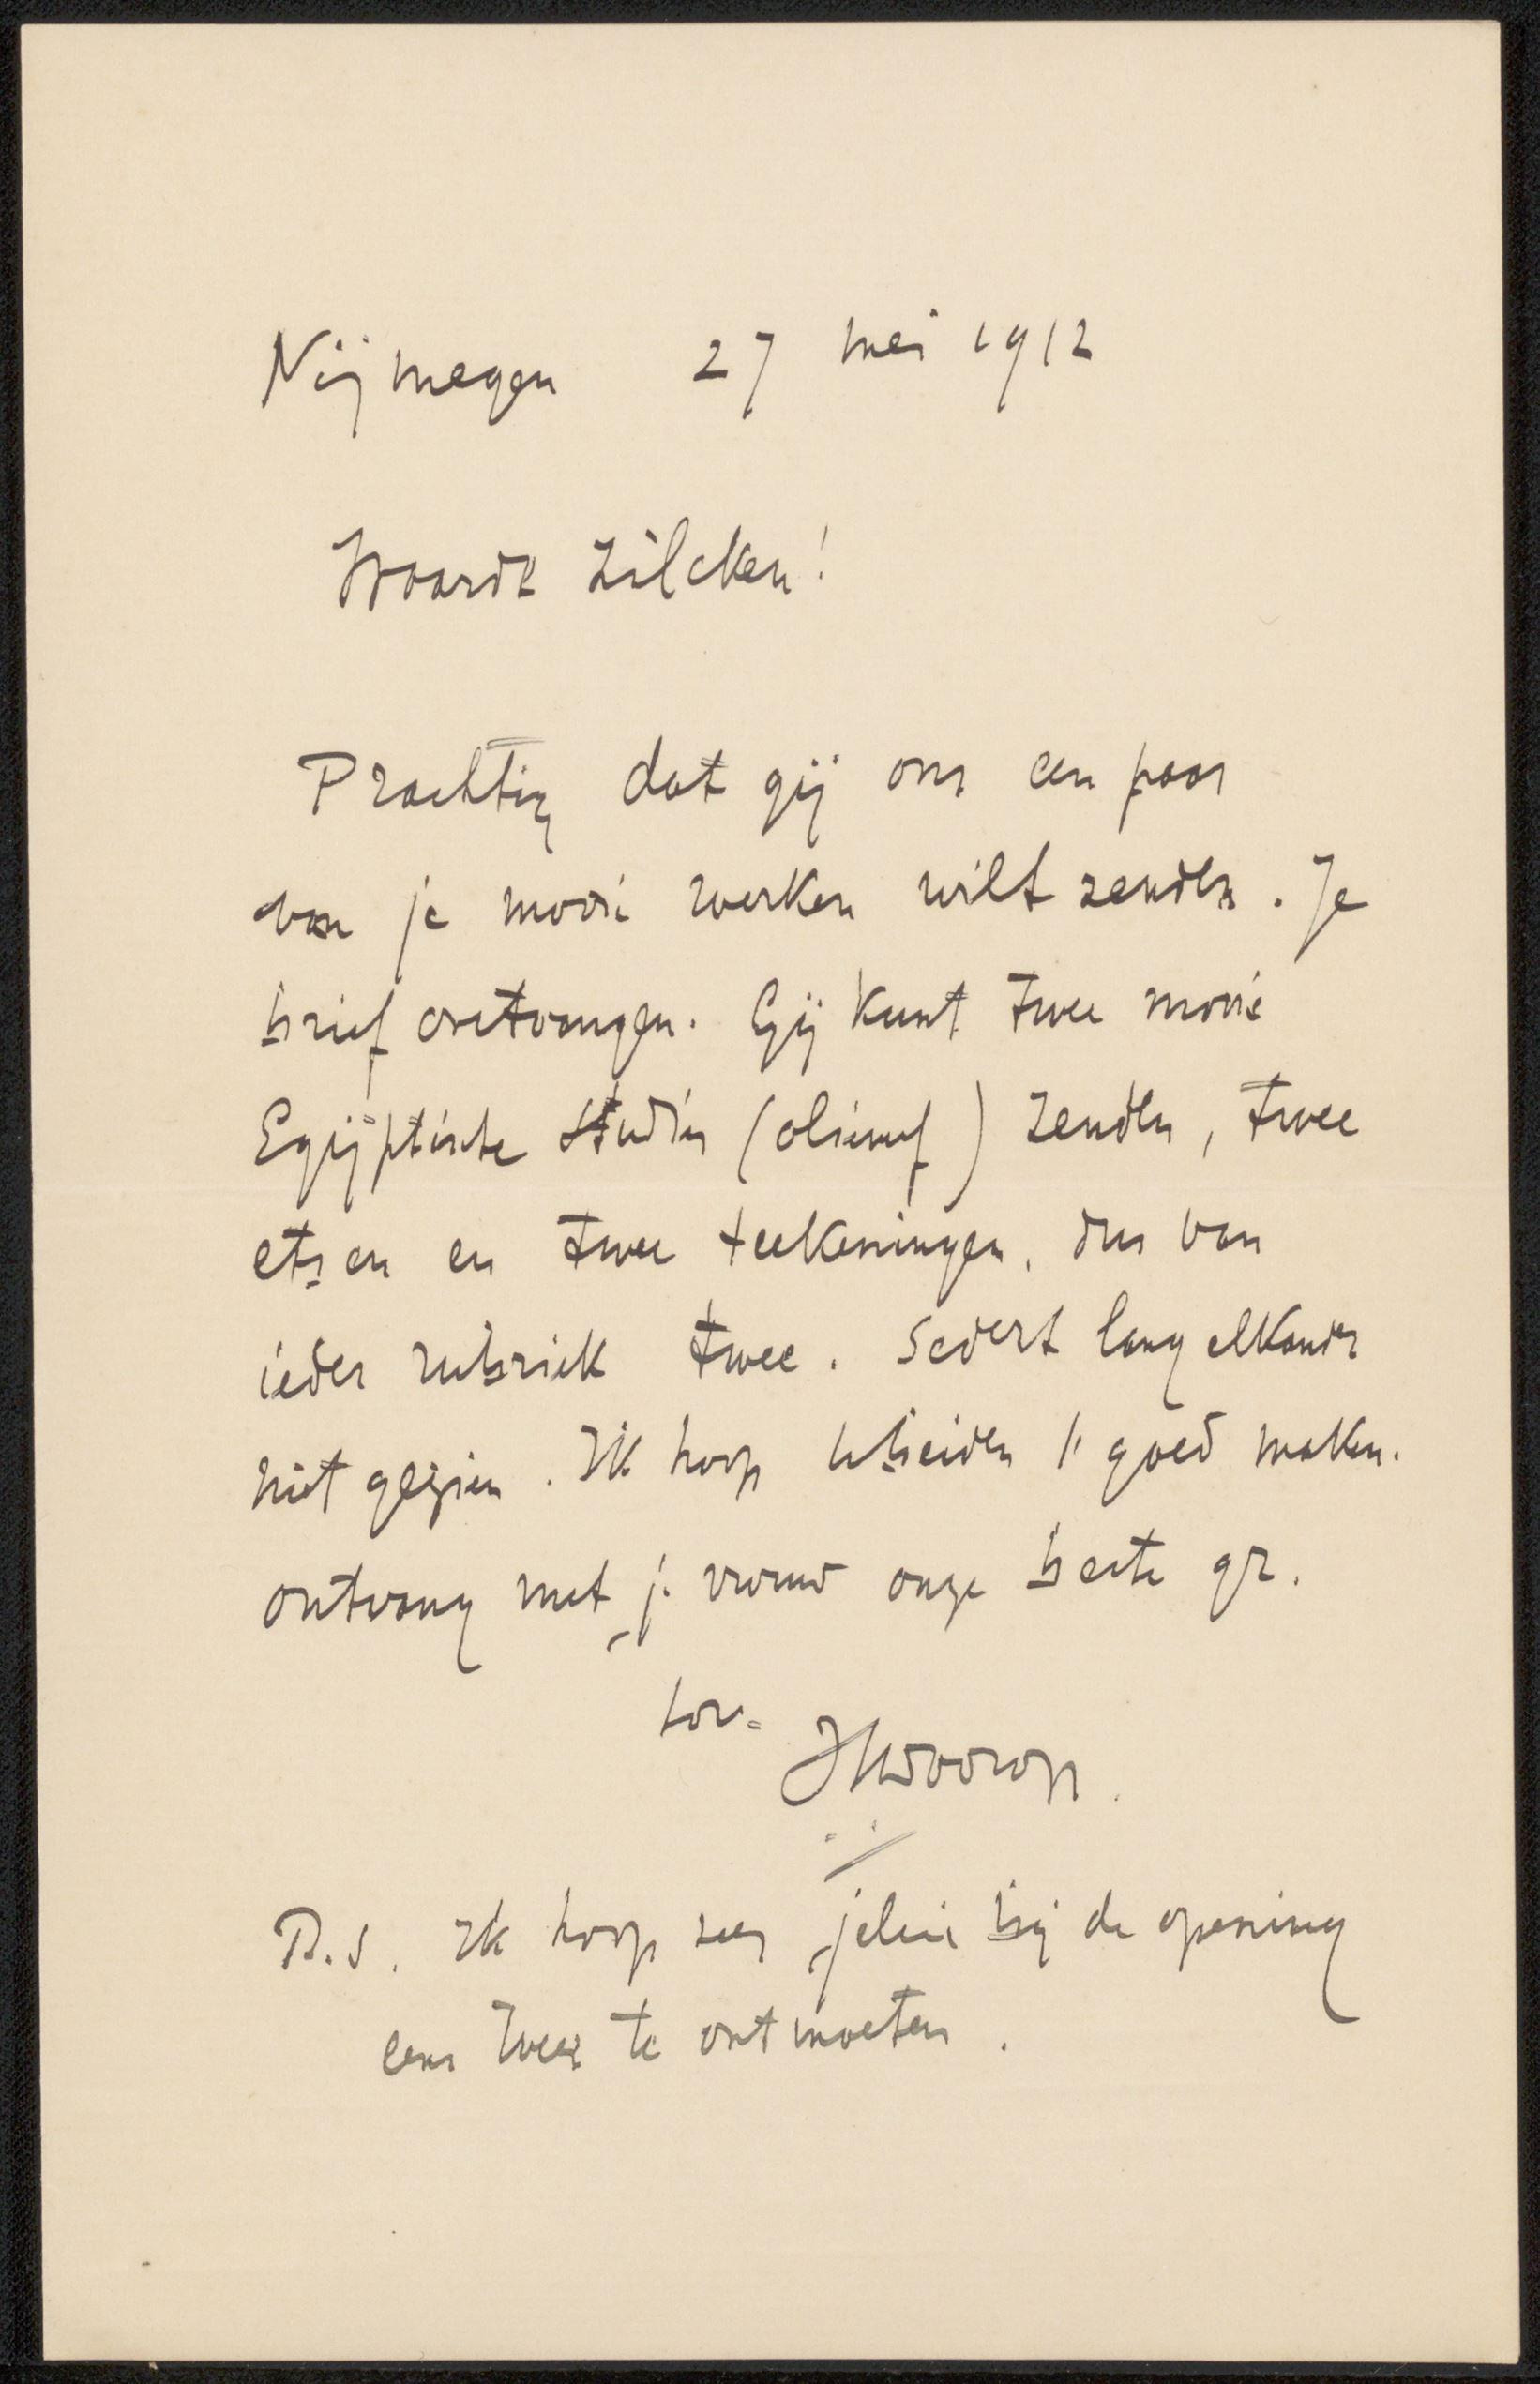 Nijmegen 27 mei 1912
Waarde Zilcken!
Prachtig dat gij ons een paar
van je mooie werken wilt zenden. Je
brief ontvangen. Gij kunt twee mooie
Egijptische studies (olieverf) zenden, twee
etsen en twee teekeningen, dus van
ieder rubriek twee. Sedert lang elkander
niet gezien. Ik hoop beiden goed maken.
ontvang met je vrouw onze beste gr.
JThToorop.
P.S. Ik hoop zeer jelui bij de opening
eens weer te ontmoeten.